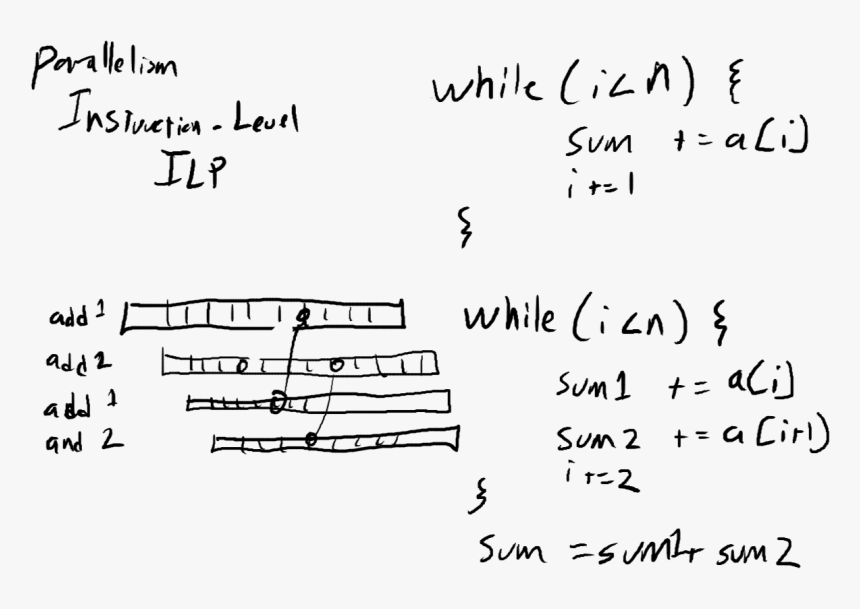 Parallelism
Instruction-Level
ILP
while (i<n) {
sum += a[i]
i+=1
}
add 1
add 2
add 1
and 2
while (i<n) {
sum1 += a[i]
sum2 += a[i+1)
i+=2
}
sum = sum1+ sum2